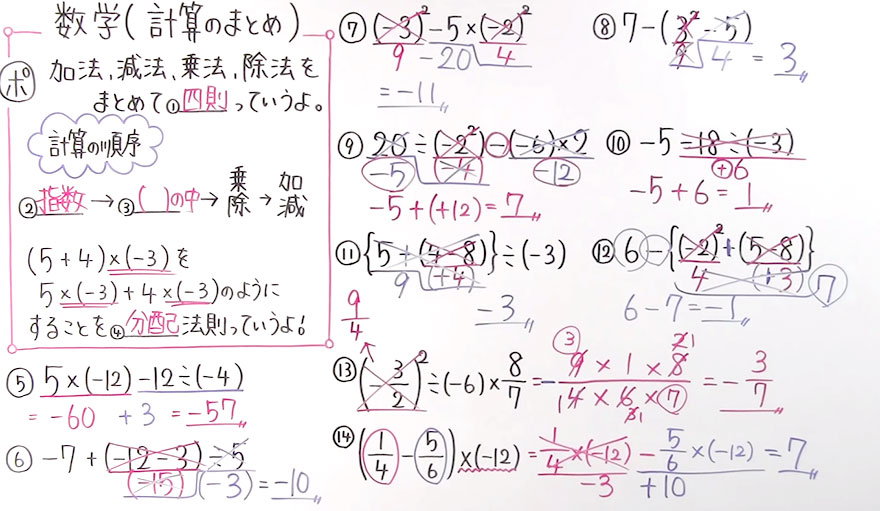 数学(計算のまとめ)
ポ 加法、減法、乗法、除法を
まとめて①四則っていうよ。
計算の順序
②指数→③( )の中→乗除→加減
(5+4)×(-3)を
5×(-3)+4×(-3)のように
することを④分配法則っていうよ!
⑤ 5×(-12)-12÷(-4)
= -60 +3 = -57
⑥ -7+(-12-3)÷5
(-15) (-3) = -10
⑦ (-3)²-5×(-2)²
9 -20 4
= -11
⑧ 7-(3²-5)
9 4 = 3
⑨ 20÷(-2²)-(-6)×2
-5 (-4) -12
-5+(+12)=7
⑩ -5-18÷(-3)
+6
-5+6=1
⑪ {5+(4-8)}÷(-3)
9 (+4)
-3
⑫ 6-{(-2)²+(5-8)}
4 (+3) 7
6-7=-1
9/4
⑬ (-3/2)²÷(-6)×8/7 = -(9×1×8)/(4×6×7) = -3/7
3 2 1
3 1
⑭ (1/4-5/6)×(-12) = 1/4×(-12) -5/6×(-12) = 7
-3 +10